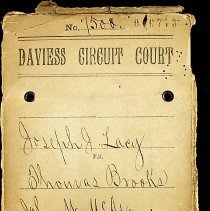 No. 7508. 06773
DAVIESS CIRCUIT COURT
Joseph J. Lacy
VS.
Thomas Brooks